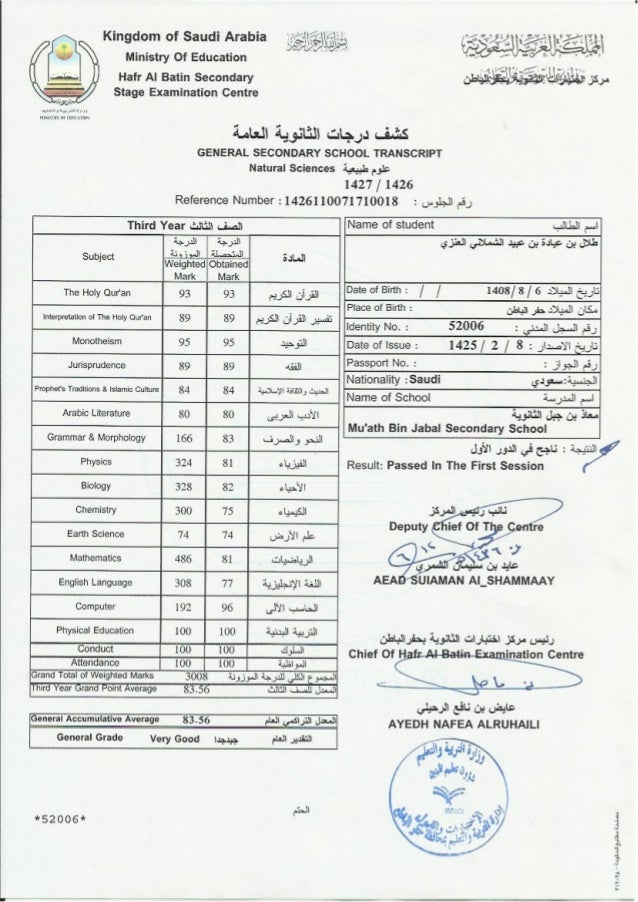 Kingdom of Saudi Arabia
Ministry Of Education
Hafr Al Batin Secondary
Stage Examination Centre
وزارة التربية والتعليم
MINISTRY OF EDUCATION
بسم الله الرحمن الرحيم
المملكة العربية السعودية
مركز اختبارات الثانوية بحفر الباطن
كشف درجات الثانوية العامة
GENERAL SECONDARY SCHOOL TRANSCRIPT
Natural Sciences علوم طبيعية
1427 / 1426
Reference Number : 1426110071710018 : رقم الجلوس
Third Year الصف الثالث
Subject الدرجة الموزونة Weighted Mark الدرجة المتحصلة Obtained Mark المادة
The Holy Qur'an 93 93 القرآن الكريم
Interpretation of The Holy Qur'an 89 89 تفسير القرآن الكريم
Monotheism 95 95 التوحيد
Jurisprudence 89 89 الفقه
Prophet's Traditions & Islamic Culture 84 84 الحديث والثقافة الإسلامية
Arabic Literature 80 80 الأدب العربي
Grammar & Morphology 166 83 النحو والصرف
Physics 324 81 الفيزياء
Biology 328 82 الأحياء
Chemistry 300 75 الكيمياء
Earth Science 74 74 علم الأرض
Mathematics 486 81 الرياضيات
English Language 308 77 اللغة الإنجليزية
Computer 192 96 الحاسب الآلي
Physical Education 100 100 التربية البدنية
Conduct 100 100 السلوك
Attendance 100 100 المواظبة
Grand Total of Weighted Marks 3008 المجموع الكلي للدرجة الموزونة
Third Year Grand Point Average 83.56 المعدل للصف الثالث
General Accumulative Average 83.56 المعدل التراكمي العام
General Grade Very Good جيدجدا التقدير العام
Name of student اسم الطالب
طلال بن عيادة بن عبيد الشملاني العنزي
Date of Birth : / / 1408/ 8/ 6 تاريخ الميلاد
Place of Birth : مكان الميلاد حفر الباطن
Identity No. : 52006 رقم السجل المدني :
Date of Issue : 1425 / 2 / 8 تاريخ الاصدار :
Passport No. : رقم الجواز :
Nationality : Saudi الجنسية: سعودي
Name of School اسم المدرسة
معاذ بن جبل الثانوية
Mu'ath Bin Jabal Secondary School
النتيجة : ناجح في الدور الأول
Result: Passed In The First Session
نائب رئيس المركز
Deputy Chief Of The Centre
عايد بن سليمان الشمري
AEAD SUIAMAN Al_SHAMMAAY
رئيس مركز اختبارات الثانوية بحفر الباطن
Chief Of Hafr Al Batin Examination Centre
عايض بن نافع الرحيلي
AYEDH NAFEA ALRUHAILI
وزارة التربية والتعليم
شؤون تعليم البنين
الختم
*52006*